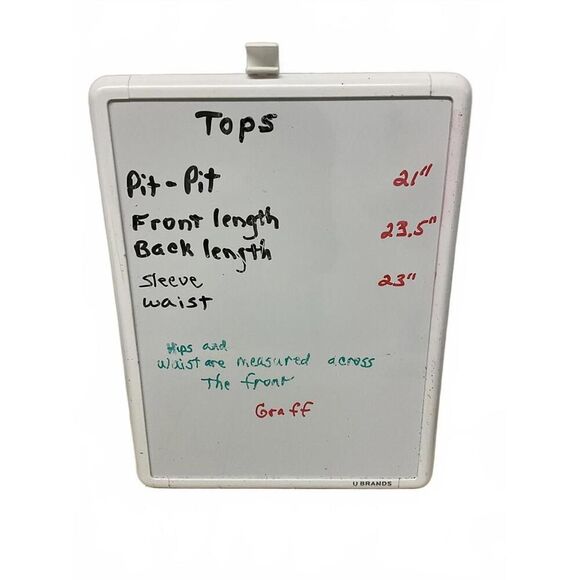 Tops
Pit-Pit 21"
Front length 23.5"
Back length
Sleeve 23"
waist
Hips and
Waist are measured across
The front
Graff
U BRANDS